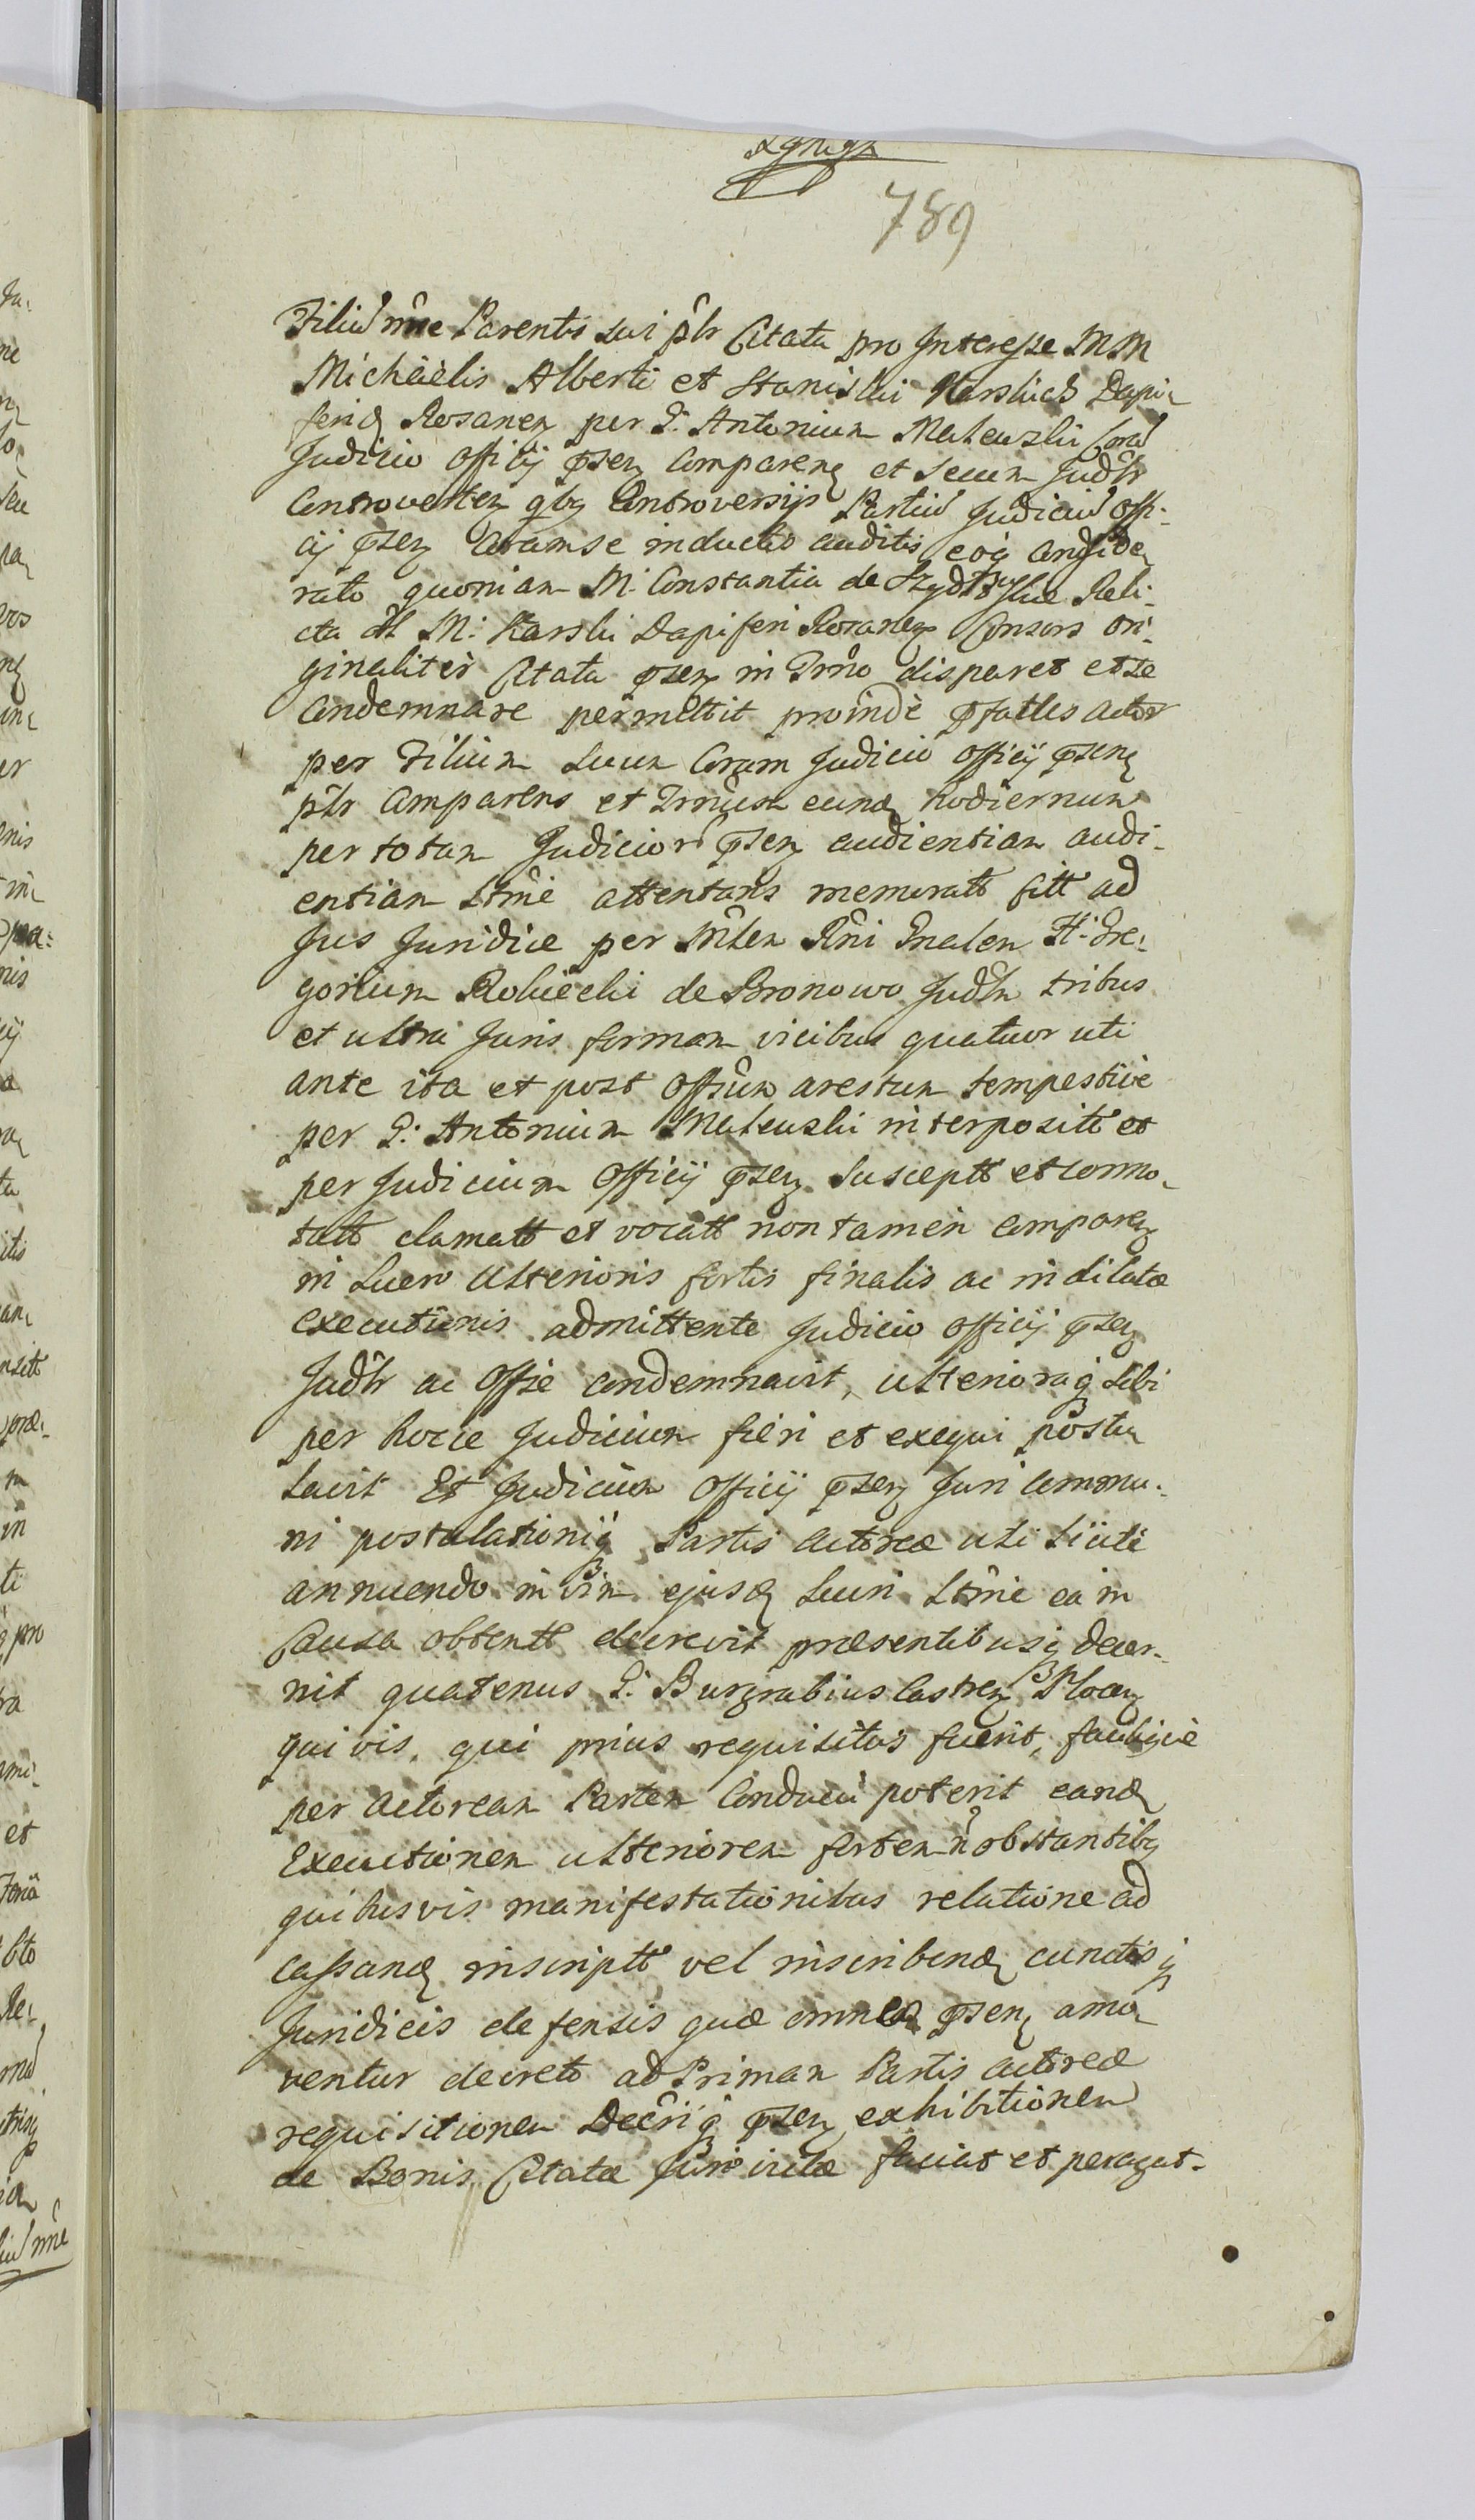 789
Filiu mne Parentis sui plr Citata pro Interesse MM
Michaelis Alberti et Stanislai Karskich Dapi-
feridq Rosanen per G: Antonium Mateuszki Cora
Judicio Officij psen comparenq et secum Judlr
Controverten qbq Controversijs Partiu Judiciu Offi-
cij psen coram se inductis auditis eoq conside-
rato quoniam M: Constantia de Reli-
cta olt M: Karski Dapiferi Rosanen Consors ori-
ginaliter Citata psen in Trno disparet et se
Condemnare permittit proinde pfattes actor
per Filium Suum Coram Judicio Officij psenq
plr Comparens et Trnum eundq hodiernum
per totam Judicior psen audientiam audi-
entiam Stnie attentans memoratt Citt ad
Jus Juridice per Mlem Rni Gnalem H: Gre-
gorium Robiecki de Bronowo Judlr tribus
et ultra Juris formam vicibus quatuor uti
ante ita et post Offium arestum tempestive
per G: Antonium Mateuszki interpositt et
per Judicium Officij psen Susceptt et conno-
tatt clamatt et vocatt non tamen comparen
in Lucro Ulterioris fortis finalis ac indilatæ
executionis admittente Judicio Officij psen
Judlr ac Offse condemnavit, ulterioraq Sibi
per hocce Judicium fieri et exequi postu-
lavit Et Judicium Officij psen Juri commu-
ni postulationiq Partis actoreæ uti
annuendo in vim ejusdq Lucri Stnie ea in
Causa obtentt decrevit præsentibusq decer-
nit quatenus G: Burgrabius Castren Plocen
quivis, qui prius requisitus fuerit,
per Actoream Partem Conduci poterit eandq
Executionem ulteriorem fortem n obstantibq
quibusvis manifestationibus relatione ad
cassandq inscriptt vel inscribendq cunctisq
Juridicis defensis quæ omnes psenq amo-
ventur decreto ad Primam Partis actoreæ
requisitionem Decriq psen exhibitionem
de Bonis Citatæ Juri victæ faciat et peragat.